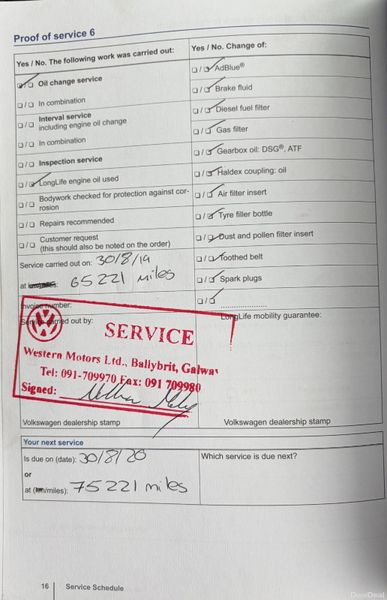 Proof of service 6
Yes / No. The following work was carried out:
Oil change service
In combination
Interval service
including engine oil change
In combination
Inspection service
LongLife engine oil used
Bodywork checked for protection against cor-
rosion
Repairs recommended
Customer request
(this should also be noted on the order)
Service carried out on: 30/8/19
at 65221 miles
Invoice number:
Service carried out by:
Yes / No. Change of:
AdBlue®
Brake fluid
Diesel fuel filter
Gas filter
Gearbox oil: DSG®, ATF
Haldex coupling: oil
Air filter insert
Tyre filler bottle
Dust and pollen filter insert
Toothed belt
Spark plugs
LongLife mobility guarantee:
SERVICE
Western Motors Ltd., Ballybrit, Galway
Tel: 091-709970 Fax: 091 709980
Signed:
Volkswagen dealership stamp
Volkswagen dealership stamp
Your next service
Is due on (date): 30/8/20
or
at (km/miles): 75221 miles
Which service is due next?
16 Service Schedule
DoneDeal